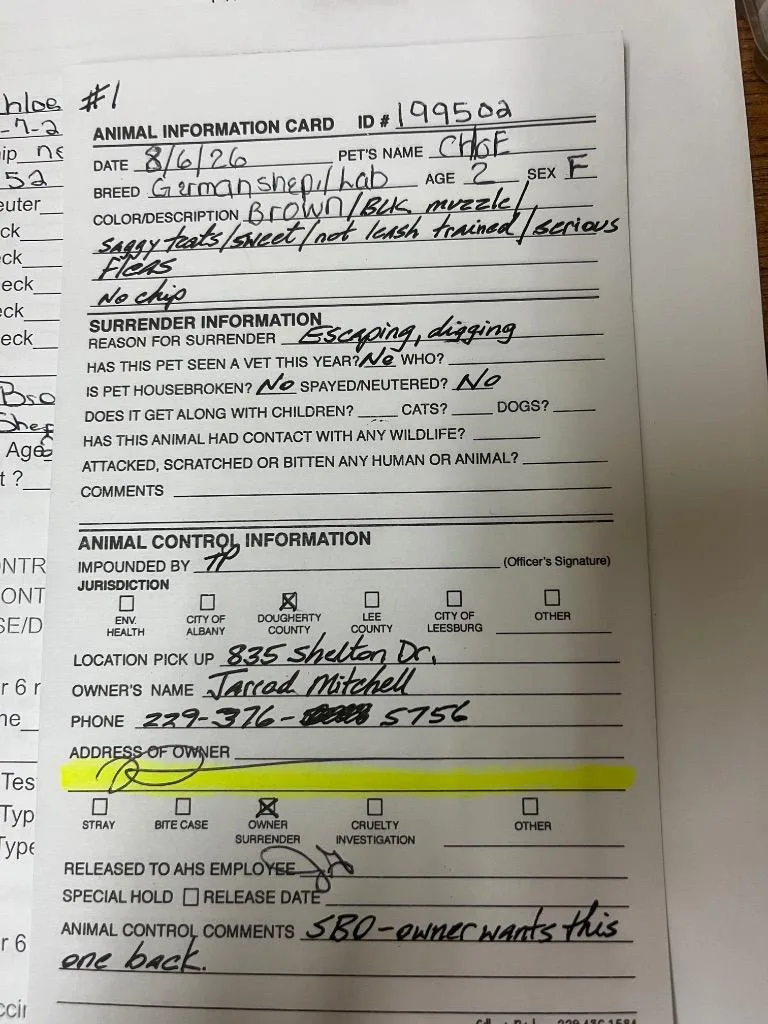 #1
hloe
-7-2
ip ne
52
euter
ck
ck
eck
eck
eck
Bro
Shep
Age
t ?
NTR
ONT
SE/D
r 6 r
ne
Tes
Typ
Type
r 6
ccin
ANIMAL INFORMATION CARD ID # 199502
DATE 8/6/26 PET'S NAME CHOE
BREED German shep./Lab AGE 2 SEX F
COLOR/DESCRIPTION Brown/BLK muzzle/
saggy teats/sweet/not leash trained/serious
fleas
No chip
SURRENDER INFORMATION
REASON FOR SURRENDER Escaping, digging
HAS THIS PET SEEN A VET THIS YEAR? No WHO?
IS PET HOUSEBROKEN? No SPAYED/NEUTERED? No
DOES IT GET ALONG WITH CHILDREN? CATS? DOGS?
HAS THIS ANIMAL HAD CONTACT WITH ANY WILDLIFE?
ATTACKED, SCRATCHED OR BITTEN ANY HUMAN OR ANIMAL?
COMMENTS
ANIMAL CONTROL INFORMATION
IMPOUNDED BY TP (Officer's Signature)
JURISDICTION
ENV. HEALTH CITY OF ALBANY DOUGHERTY COUNTY LEE COUNTY CITY OF LEESBURG OTHER
LOCATION PICK UP 835 Shelton Dr.
OWNER'S NAME Jarrad Mitchell
PHONE 229-376- 5756
ADDRESS OF OWNER
STRAY BITE CASE OWNER SURRENDER CRUELTY INVESTIGATION OTHER
RELEASED TO AHS EMPLOYEE
SPECIAL HOLD RELEASE DATE
ANIMAL CONTROL COMMENTS SBO-owner wants this
one back.